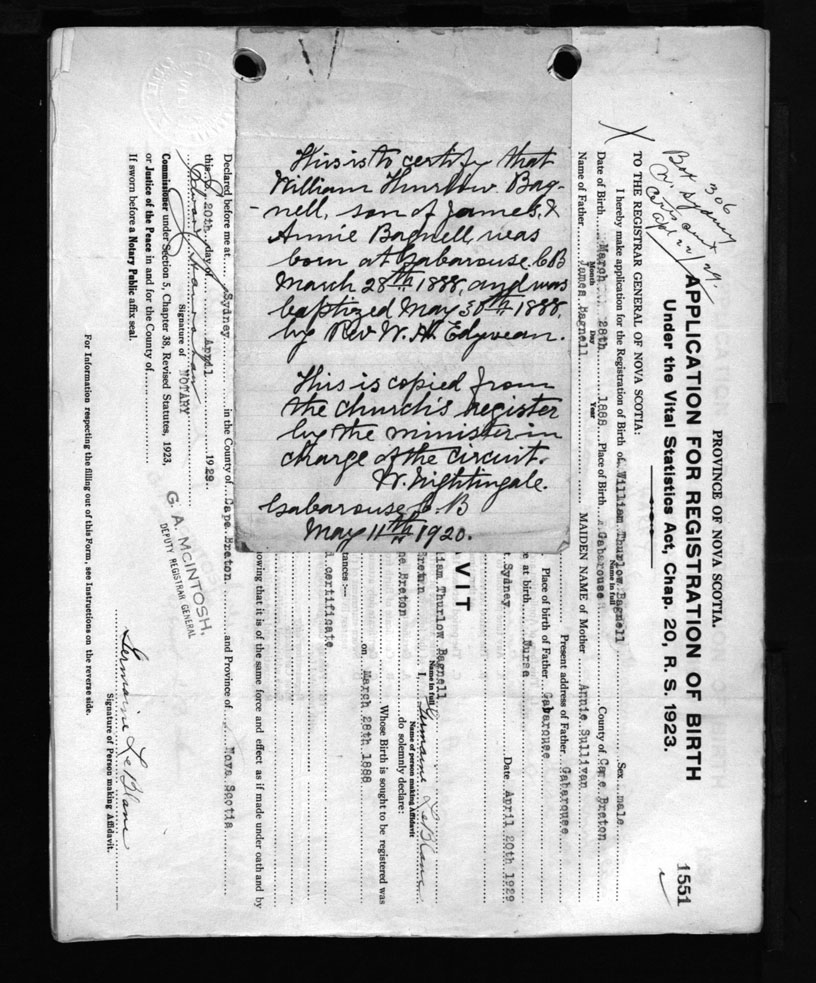 This is to certify that
William Thurlow Bag-
-nell, son of James &
Annie Bagnell, was
born at Gabarouse C.B
March 28th 1888, and was
baptized May 30th 1888,
by Rev W. H. Edyvean.
This is copied from
the church's register
by the minister in
charge of the circuit.
W. Nightingale.
Gabarouse C.B
May 11th 1920.
Box 306
N. Sydney
PROVINCE OF NOVA SCOTIA.
APPLICATION FOR REGISTRATION OF BIRTH
1551
Under the Vital Statistics Act, Chap. 20, R. S. 1923.
TO THE REGISTRAR GENERAL OF NOVA SCOTIA:
I hereby make application for the Registration of Birth of William Thurlow Bagnell Sex male
Name in full
Date of Birth March 28th 1888 Place of Birth Gabarouse County of Cape Breton
Month Day Year
Name of Father James Bagnell MAIDEN NAME of Mother Annie Sullivan
Present address of Father Gabarouse
Place of birth of Father Gabarouse
e at birth Nurse
Sydney Date April 20th 1929
VIT
liam Thurlow Bagnell I, Germaine LeBlanc
Name in full Name of person making Affidavit
Breton do solemnly declare:
e Breton
Whose Birth is sought to be registered was
on March 28th 1888
tances:—
d certificate
owing that it is of the same force and effect as if made under oath and by
Declared before me at Sydney in the County of Cape Breton and Province of Nova Scotia
this 20th day of April 1929
Signature of NOTARY
Germaine LeBlanc
Signature of Person making Affidavit.
Commissioner under Section 5, Chapter 38, Revised Statutes, 1923,
or Justice of the Peace in and for the County of
If sworn before a Notary Public affix seal.
G. A. McINTOSH,
DEPUTY REGISTRAR GENERAL
For Information respecting the filling out of this Form, see Instructions on the reverse side.